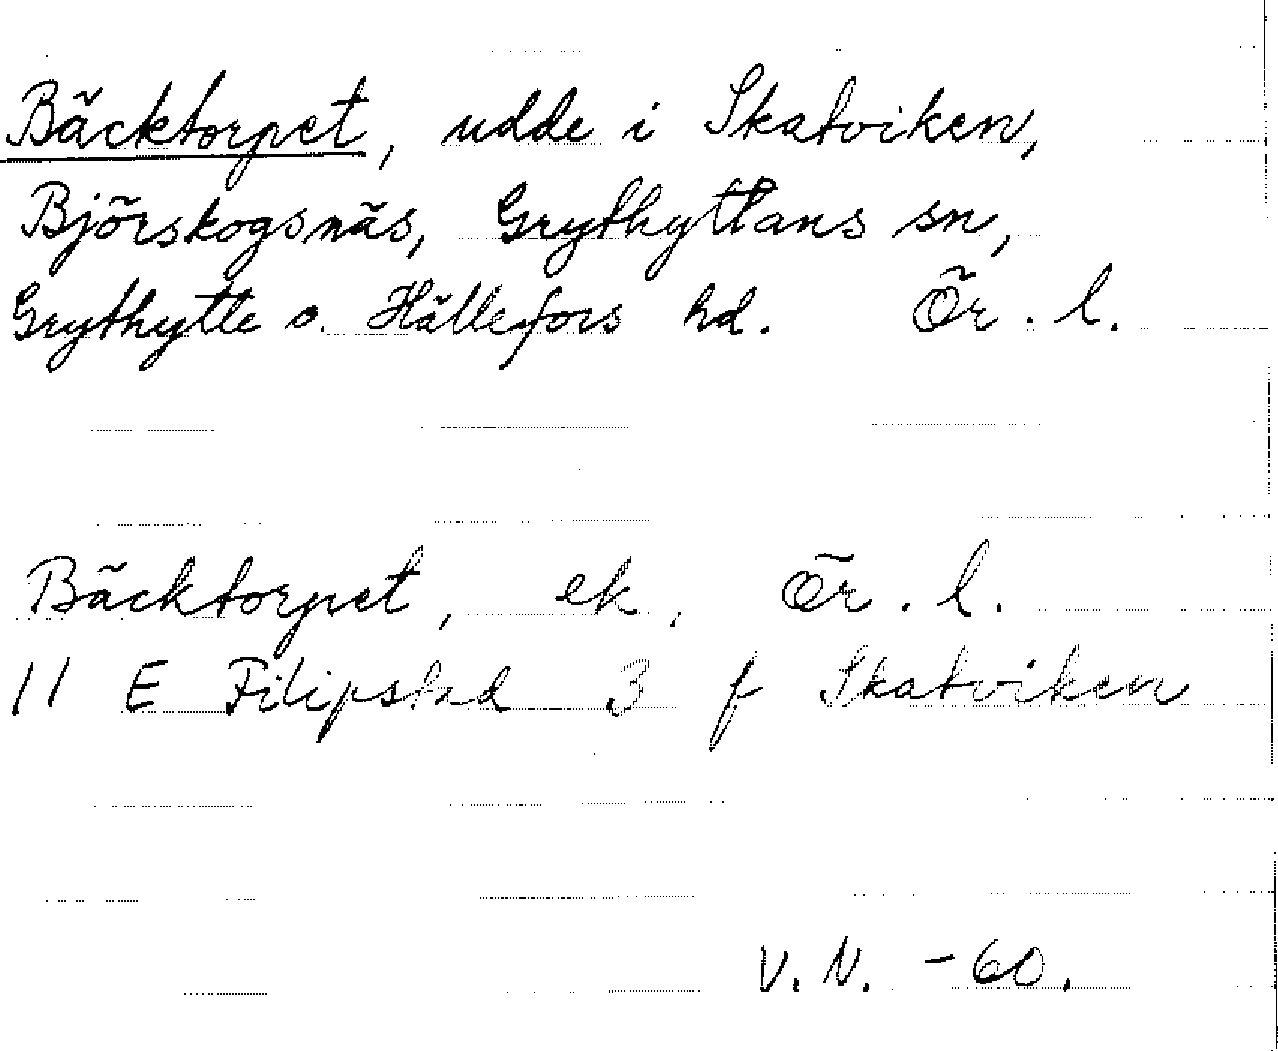 Bäcktorpet, udde i Skatviken,
Björskogsnäs, Grythyttans sn,
Grythytte o. Hällefors hd. Ör. l.
Bäcktorpet, ek, Ör. l.
11 E Filipstad 3 f Skatviken
V. N. -60.